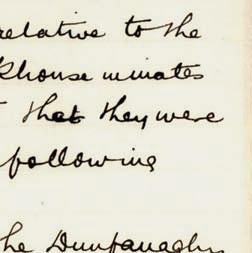 relative to the
khouse inmates
that they were
following
he Dunfanaghy